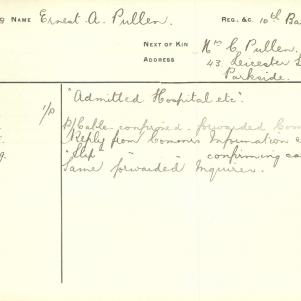 g NAME Ernest A. Pullen. REG. &C. 10th Ba
NEXT OF KIN Mrs C, Pullen.
ADDRESS 43. Leicester S
Parkside.
"Admitted Hospital etc".
1/P P/Cable confirmed - forwarded Com
Reply from Comons Information
"Slip " " confirming ca
g. Same forwarded Inquirer.